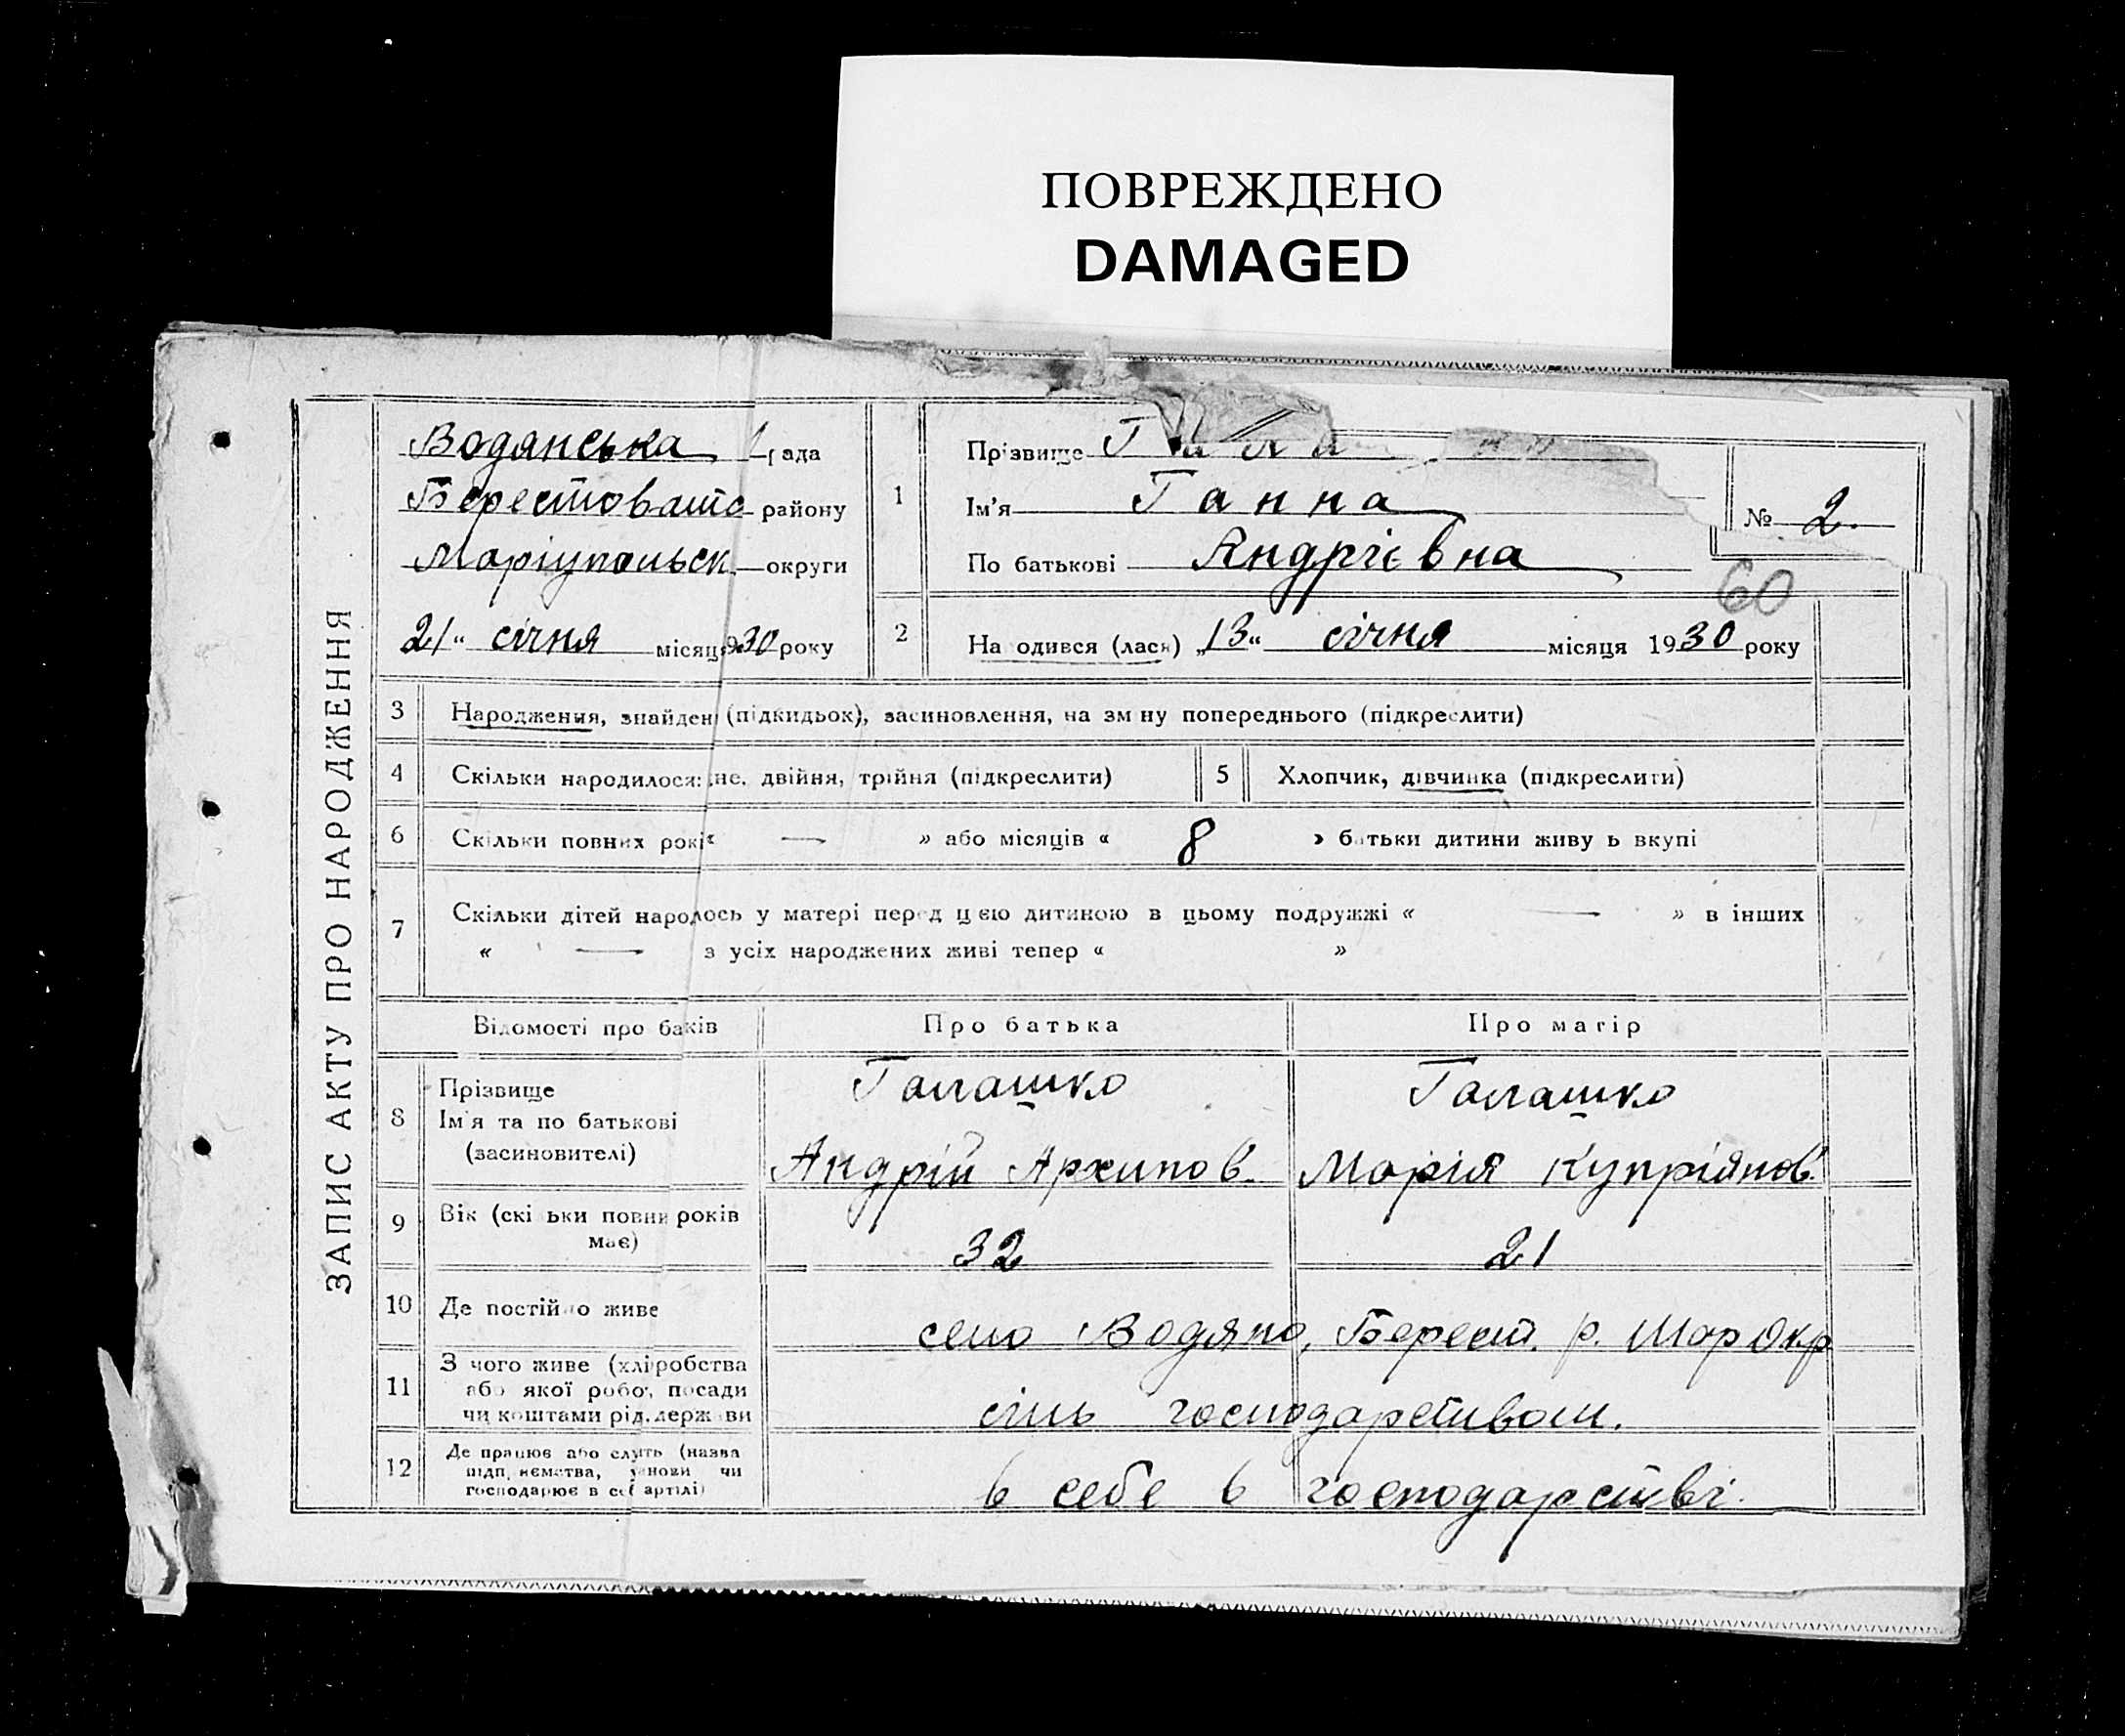 ПОВРЕЖДЕНО
DAMAGED
ЗАПИС АКТУ ПРО НАРОДЖЕННЯ
Водянська рада
Берестовато району
Маріупольск. округи
21 " січня місяця 930 року
1 Прізвище Гала
Ім'я Ганна
По батькові Андріївна
№ 2.
60
2 На одився (лася) „13" січня місяця 1930 року
3 Народження, знайден (підкидьок), засиновлення, на зм ну попереднього (підкреслити)
4 Скільки народилося: не, двійня, трійня (підкреслити)
5 Хлопчик, дівчинка (підкреслити)
6 Скільки повних рокі« — » або місяців « 8 » батьки дитини живу ь вкупі
7 Скільки дітей народлось у матері перед цією дитиною в цьому подружжі « — » в інших
« — з усіх народжених живі тепер « »
Відомості про баків Про батька Про матір
8 Прізвище
Ім'я та по батькові
(засиновителі)
Галашко
Андрій Архипов.
Галашко
Марія Купріянов.
9 Вік (скі ьки повни років
має)
32 21
10 Де постійно живе
село Водяно, Берест. р. Мар Окр
11 З чого живе (хліробства
або якої робо, посади
чи коштами рід. держави
сіль господарством.
12 Де працює або слуть (назва
підп иємства, установи чи
господарює в себ артілі)
в себе в господарстві.